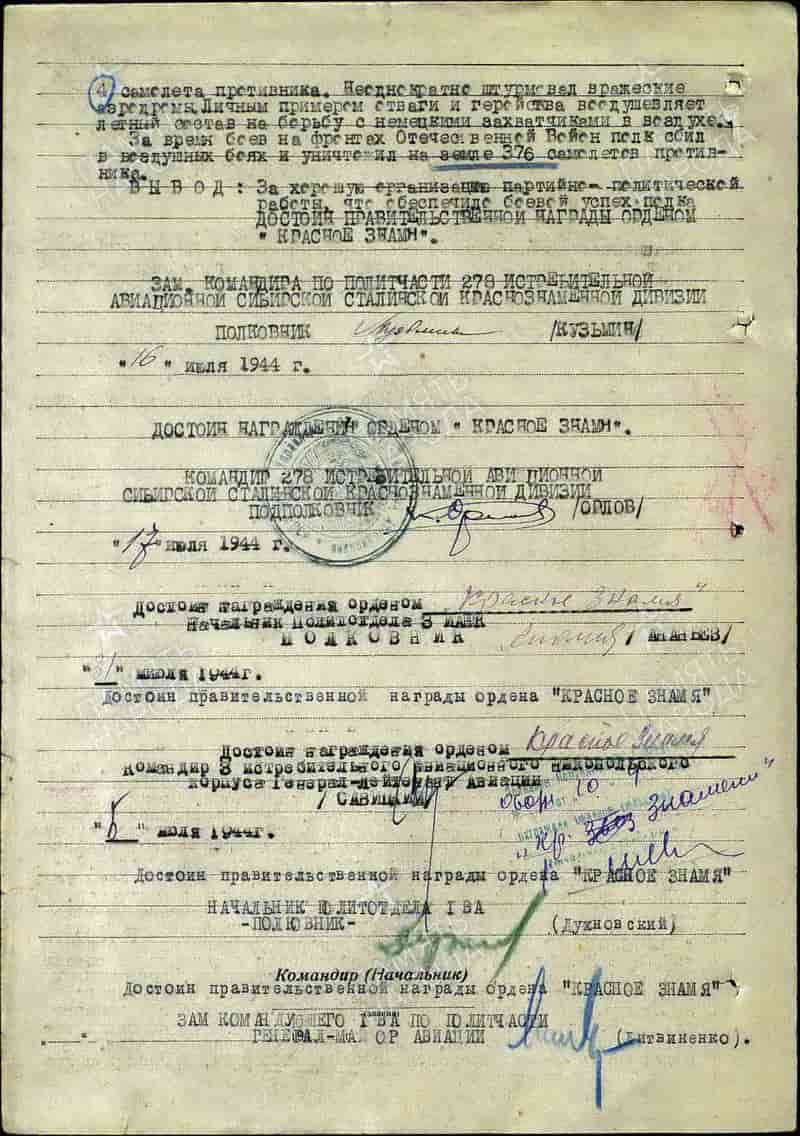 4 самолета противника. Неоднократно штурмовал вражеские
аэродромы. Личным примером отваги и геройства воодушевляет
летный состав на борьбу с немецкими захватчиками в воздухе.
За время боев на фронтах Отечественной Войны полк сбил
в воздушных боях и уничтожил на земле 376 самолетов против-
ника.
ВЫВОД: За хорошую организацию партийно-политической
работы, что обеспечило боевой успех полка
ДОСТОИН ПРАВИТЕЛЬСТВЕННОЙ НАГРАДЫ ОРДЕНОМ
" КРАСНОЕ ЗНАМЯ".
ЗАМ. КОМАНДИРА ПО ПОЛИТЧАСТИ 278 ИСТРЕБИТЕЛЬНОЙ
АВИАЦИОННОЙ СИБИРСКОЙ СТАЛИНСКОЙ КРАСНОЗНАМЕННОЙ ДИВИЗИИ
ПОЛКОВНИК /КУЗЬМИН/
"16" июля 1944 г.
ДОСТОИН НАГРАЖДЕНИЯ ОРДЕНОМ " КРАСНОЕ ЗНАМЯ".
КОМАНДИР 278 ИСТРЕБИТЕЛЬНОЙ АВИАЦИОННОЙ
СИБИРСКОЙ СТАЛИНСКОЙ КРАСНОЗНАМЕННОЙ ДИВИЗИИ
ПОДПОЛКОВНИК /ОРЛОВ/
"17" июля 1944 г.
Достоин награждения орденом "Красное знамя"
Начальник Политотдела 3 ИАНК
ПОЛКОВНИК /АНАНЬЕВ/
"31" июля 1944г.
Достоин правительственной награды ордена "КРАСНОЕ ЗНАМЯ"
Достоин награждения орденом Красное Знамя
Командир 3 истребительного авиационного Никопольского
корпуса Генерал-лейтенант Авиации
/САВИЦКИЙ/
июля 1944г.
"Кр. Знамени"
Достоин правительственной награды ордена "КРАСНОЕ ЗНАМЯ"
НАЧАЛЬНИК ПОЛИТОТДЕЛА I ВА
-ПОЛКОВНИК- (Духновский)
Командир (Начальник)
Достоин правительственной награды ордена "КРАСНОЕ ЗНАМЯ"
ЗАМ КОМАНДУЮЩЕГО I ВА ПО ПОЛИТЧАСТИ
ГЕНЕРАЛ-МАЙОР АВИАЦИИ (Литвиненко).